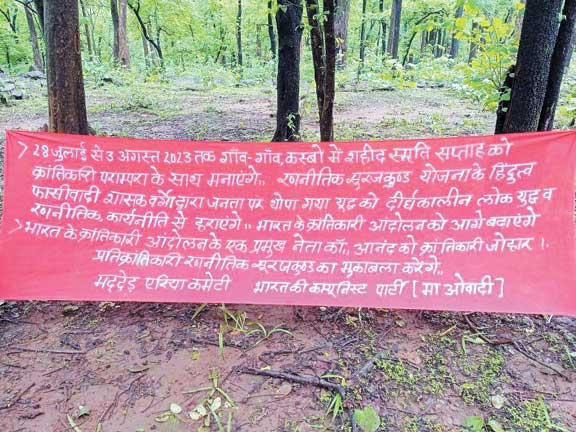 > 28 जुलाई से 3 अगस्त 2023 तक गाँव-गाँव, कस्बो मे शहीद स्मृति सप्ताह को
क्रांतिकारी परम्परा के साथ मनाएंगे,, रणनीतिक सूरजकुण्ड योजना के हिंदुत्व
फासीवादी शासक वर्ग द्वारा जनता पर थोपा गया युद्ध को दीर्घकालीन लोक युद्ध व
रणनीतिक, कार्यनीति से हराएंगे,, भारत के क्रांतिकारी आंदोलन को आगे बढाएंगे
> भारत के क्रांतिकारी आंदोलन के एक प्रमुख नेता कॉ,, आनंद को क्रांतिकारी जोहार।
प्रतिक्रांतिकारी रणनीतिक सूरजकुण्ड का मुकाबला करेंगे,,
मद्देड़ एरिया कमेटी भारत की कम्युनिस्ट पार्टी [मा ओवादी]